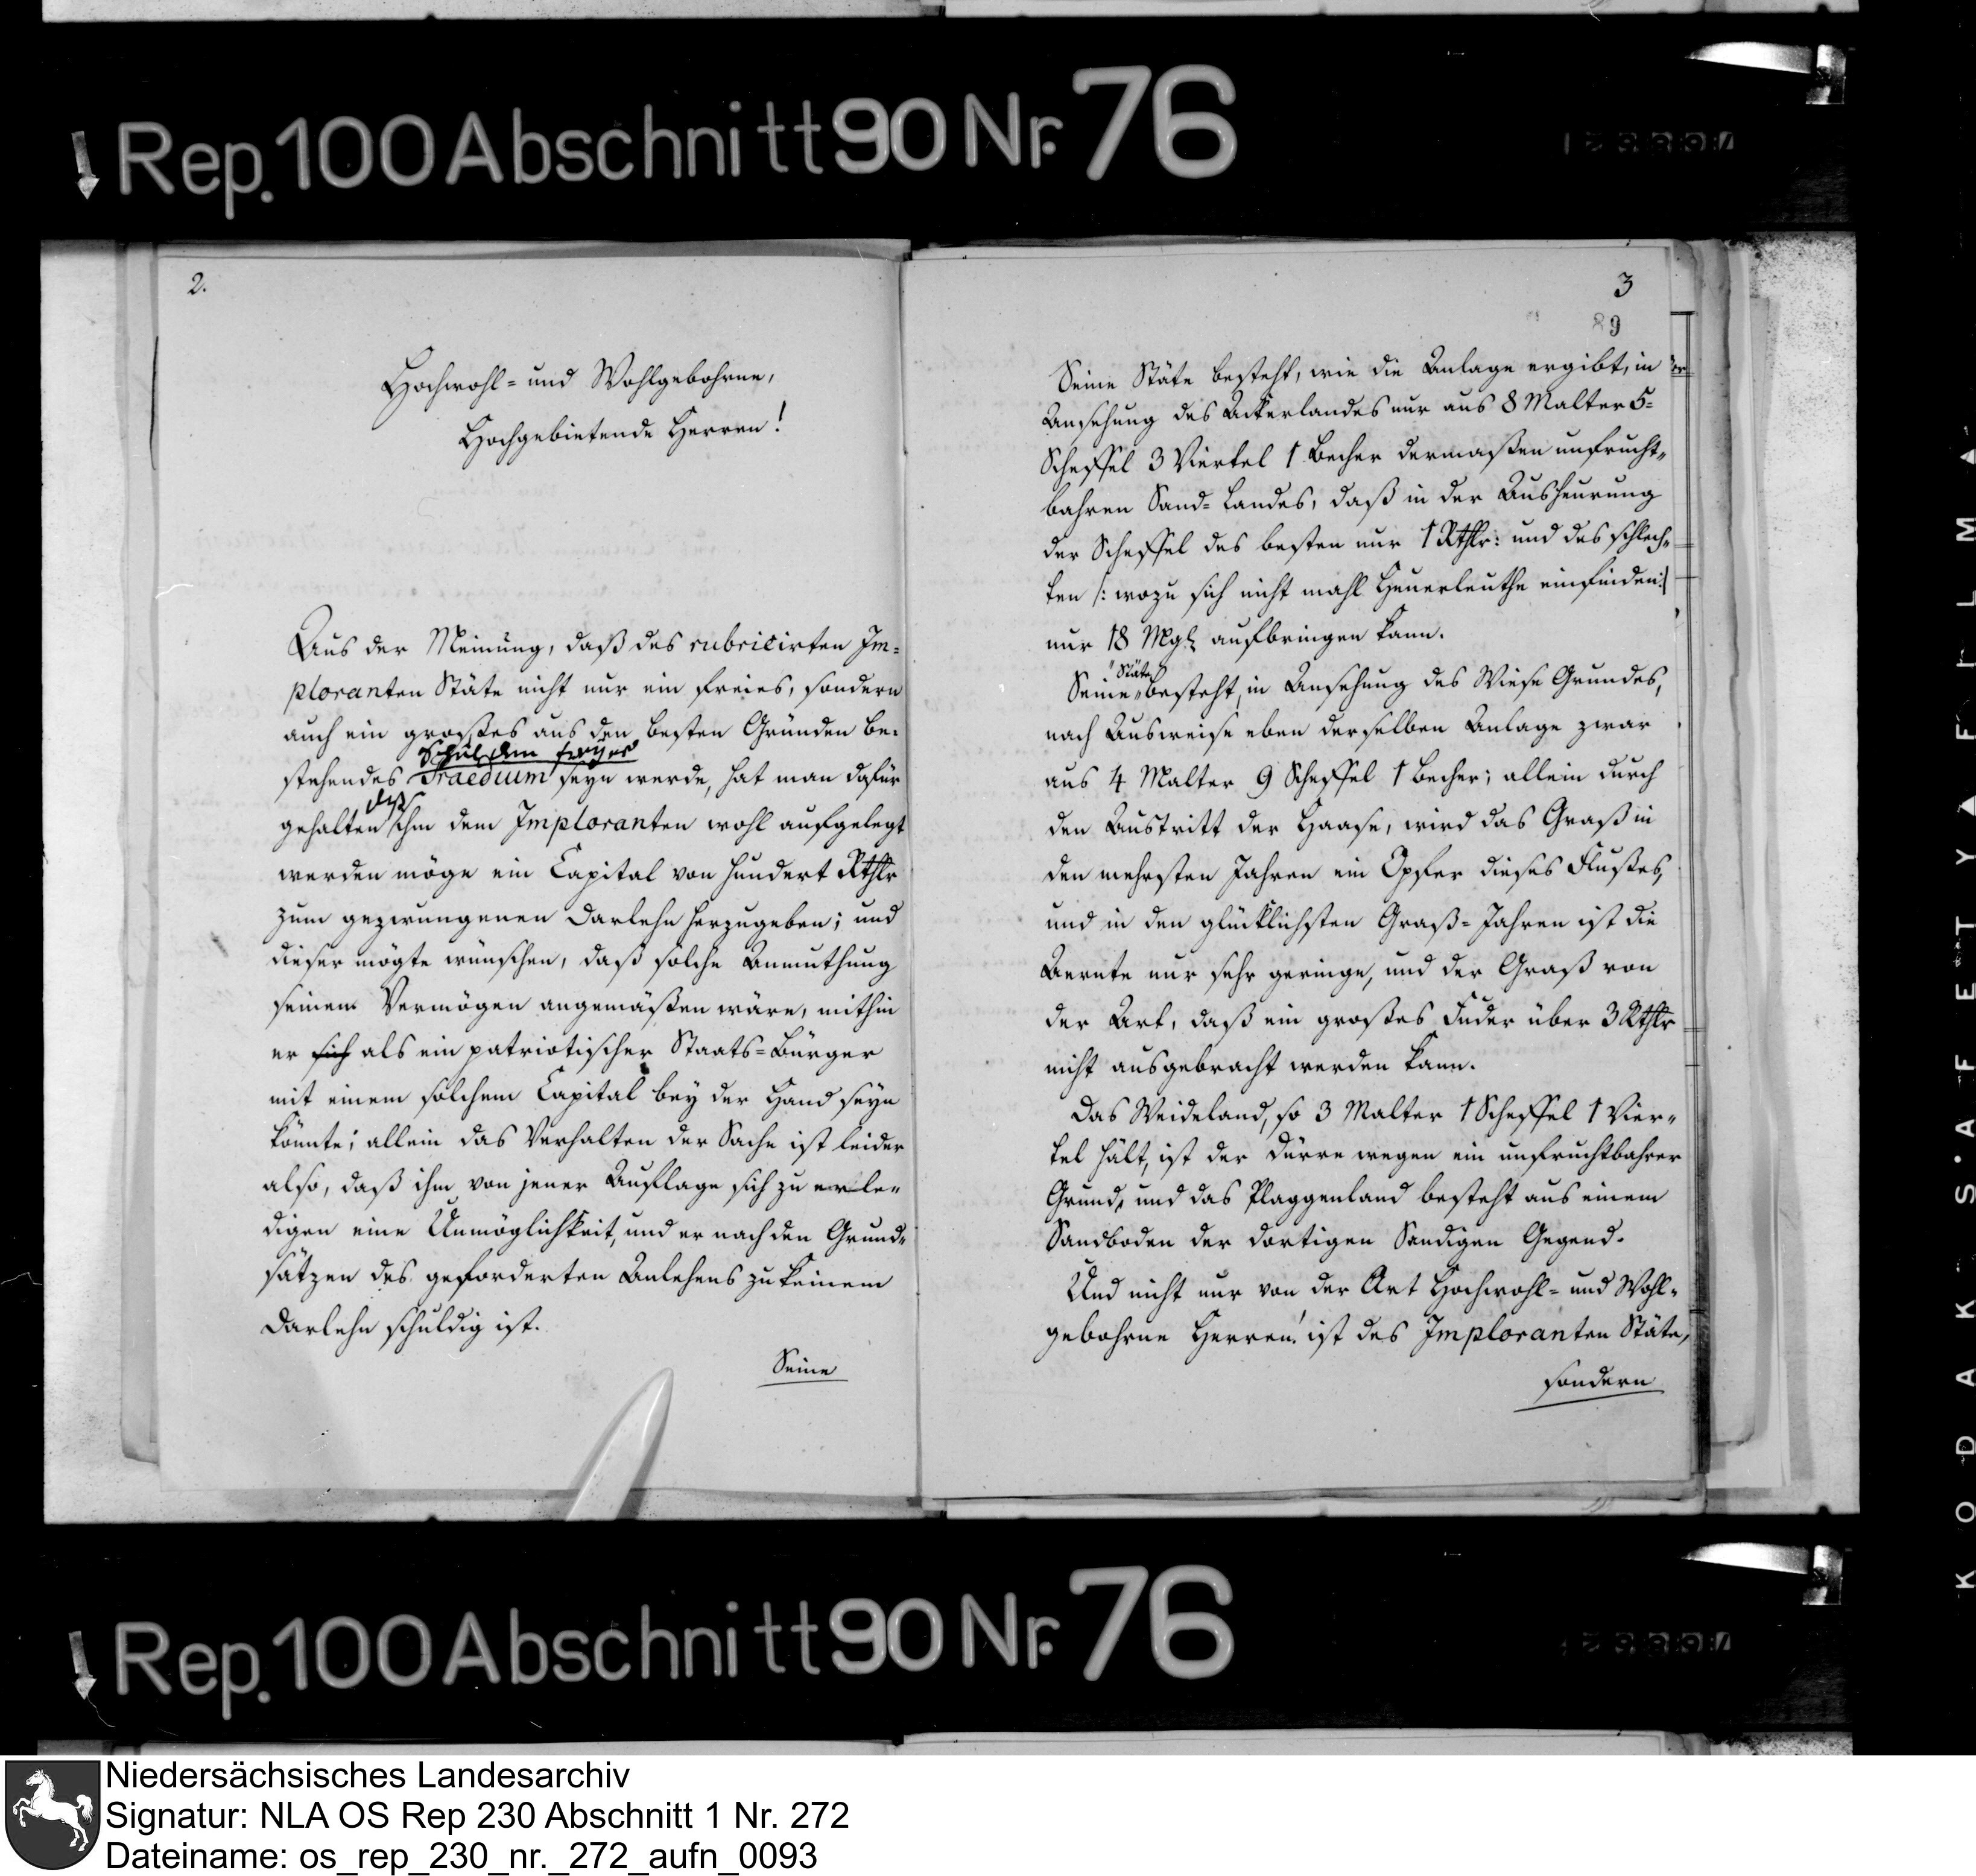 Rep. 100 Abschnitt 90 Nr. 76
2.
Hochwohl- und Wohlgebohrne,
Hochgebietende Herren!
Aus der Meinung, daß des rubricirten Im-
ploranten Stäte nicht nur ein freies, sondern
auch ein großes aus den besten Gründen be-
Schulden freyes
stehendes Praedium seyn werde, hat man dafür
daß
gehalten ihm dem Imploranten wohl aufgelegt
werden möge ein Capital von hundert Rthlr
zum gezwungenen Darlehn herzugeben; und
dieser mögte wünschen, daß solche Anmuthung
seinem Vermögen angemäßen wäre, mithin
er sich als ein patriotischer Staats-Bürger
mit einem solchem Capital bey der Hand seyn
könnte; allein das Verhalten der Sache ist leider
also, daß ihm von jener Auflage sich zu erle-
digen eine Unmöglichkeit, und er nach den Grund-
sätzen des geforderten Anlehens zu keinem
Darlehn schuldig ist.
Seine
3
89
Seine Stäte besteht, wie die Anlage ergibt, in
Ansehung des Ackerlandes nur aus 8 Malter 5-
Scheffel 3 Viertel 1 Becher dermaßen unfrucht-
bahren Sand-Landes, daß in der Ausheurung
der Scheffel des besten nur 1 Rthlr: und des schlech-
ten /: wozu sich nicht mahl Heuerleuthe einfinden :/
nur 18 Mgl aufbringen kann.
Stäte
Seine besteht, in Ansehung des Wiese Grundes,
nach Ausweise eben derselben Anlage zwar
aus 4 Malter 9 Scheffel 1 Becher; allein durch
den Austritt der Haase, wird das Graß in
den mehrsten Jahren ein Opfer dieses Flußes,
und in den glücklichsten Graß-Jahren ist die
Aernte nur sehr geringe, und der Graß von
der Art, daß ein großes Fuder über 3 Rthlr
nicht ausgebracht werden kann.
Das Weideland, so 3 Malter 1 Scheffel 1 Vier-
tel hält, ist der Dürre wegen ein unfruchtbahrer
Grund, und das Plaggenland besteht aus einem
Sandboden der dortigen Sandigen Gegend.
Und nicht nur von der Art Hochwohl- und Wohl-
gebohrne Herren! ist des Imploranten Stäte,
sondern
Rep. 100 Abschnitt 90 Nr. 76
KODAK SAFETY FILM
Niedersächsisches Landesarchiv
Signatur: NLA OS Rep 230 Abschnitt 1 Nr. 272
Dateiname: os_rep_230_nr._272_aufn_0093